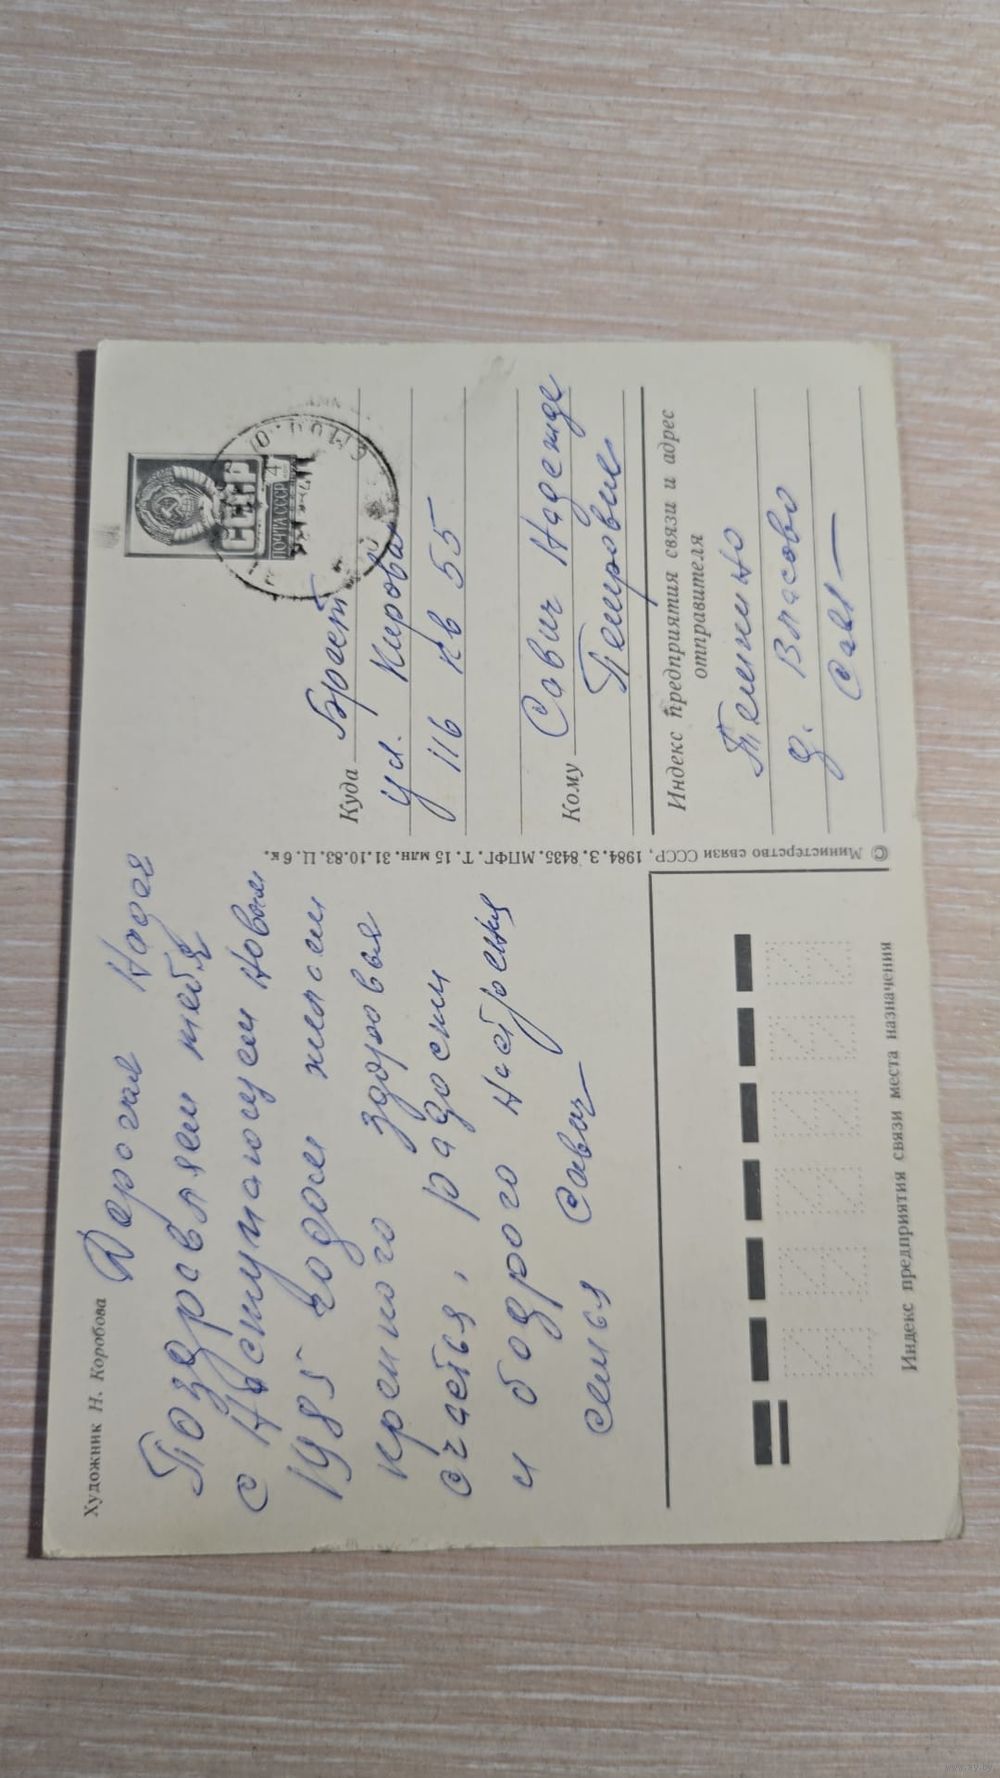 Художник Н. Коробова
Дорогая Надя
Поздравляем тебя
с Наступающем Новым
1985 Годом желаем
крепкого здоровья
счастья, радости
и бодрого настроения
семья Савич
ПОЧТА СССР 4
Куда Брест
ул. Кирова
116 кв 55
Кому Савич Надежде
Петровне
Индекс предприятия связи и адрес
отправителя
д. Власово
Сав
© Министерство связи СССР, 1984. З. 8435. МПФГ. Т. 15 млн. 31.10.83. Ц. 6 к.
Индекс предприятия связи места назначения